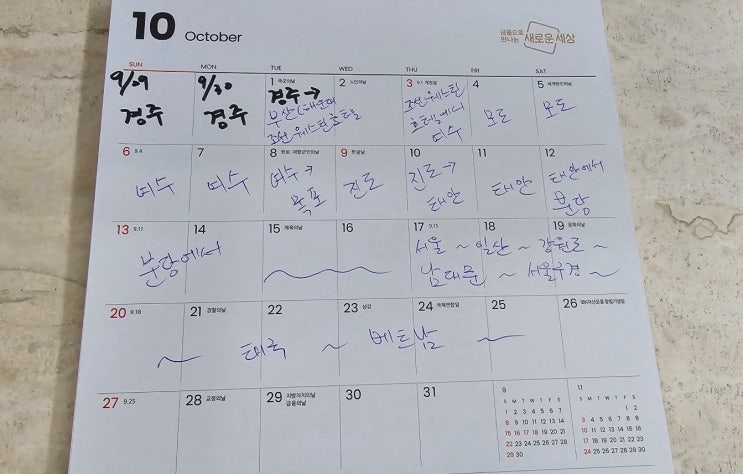 10 October
금융으로
만나는 새로운 세상
SUN MON TUE WED THU FRI SAT
9/29 9/30 1 국군의날 2 노인의날 3 9.1 개천절 4 5 세계한인의날
경주 경주 경주→ 조선웨스틴 모도 모도
부산(해운대 호텔에서
조선웨스틴호텔 여수
6 9.4 7 8 재향군인의날 9 한글날 10 11 12
여수 여수 여수→ 진도 진도→ 태안 태안에서
목포 태안 분당
13 9.11 14 15 체육의날 16 17 9.15 18 19 문화의날
분당에서 서울 ~ 일산 ~ 강원도 ~
남대문 ~ 서울구경 ~
20 9.18 21 경찰의날 22 23 상강 24 국제연합일 25 26
~ 태국 ~ 베트남 ~
27 9.25 28 교정의날 29 지방자치의날 30 31
금융의날
9
S M T W T F S
1 2 3 4 5 6 7
8 9 10 11 12 13 14
15 16 17 18 19 20 21
22 23 24 25 26 27 28
29 30
11
S M T W T F S
1 2
3 4 5 6 7 8 9
10 11 12 13 14 15 16
17 18 19 20 21 22 23
24 25 26 27 28 29 30